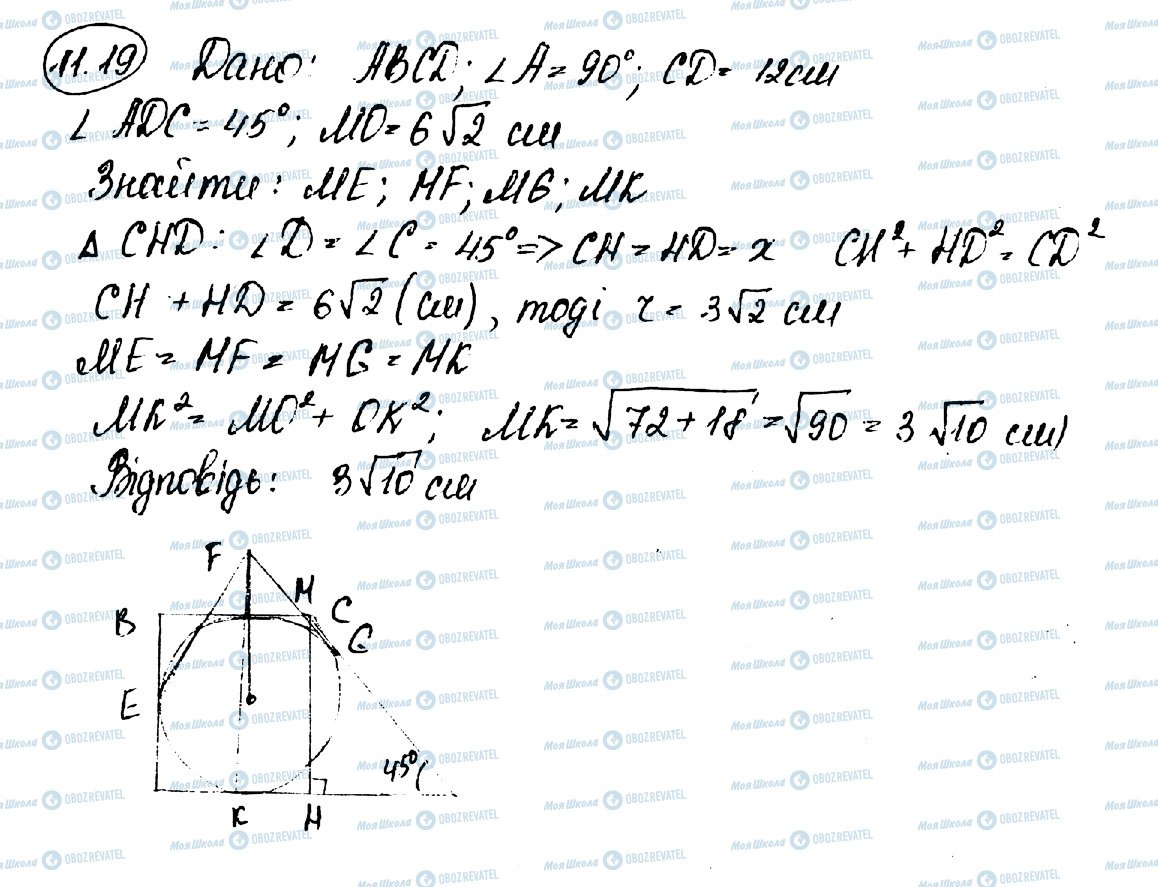 11.19 Дано: ABCD; ∠A = 90°; CD = 12 см
∠ADC = 45°; MO = 6√2 см
Знайти: ME; MF; MG; MK
Δ CHD: ∠D = ∠C = 45° => CH = HD = x CH² + HD² = CD²
CH + HD = 6√2 (см), тоді r = 3√2 см
ME = MF = MG = MK
MK² = MO² + OK²; MK = √72 + 18 = √90 = 3√10 см)
Відповідь: 3√10 см
F
M
B
C
G
E
45°
K
H
Моя Школа OBOZREVATEL